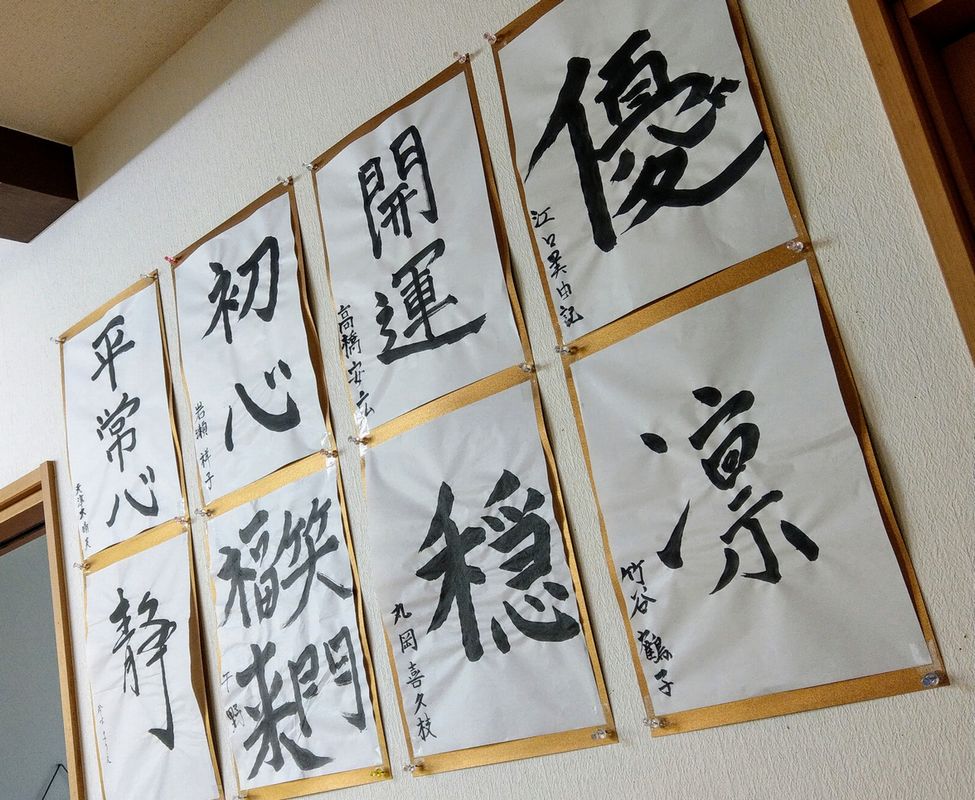 優
江口美由記
開運
高橋安広
初心
岩瀬祥子
平常心
凛
竹谷鶴子
穏
丸岡喜久枝
笑門
福来
静